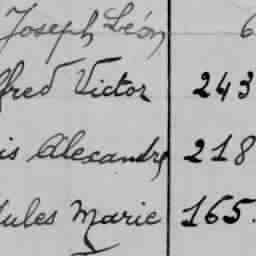 Joseph Léon 6
fred Victor 243
is Alexandre 218
Jules Marie 165.